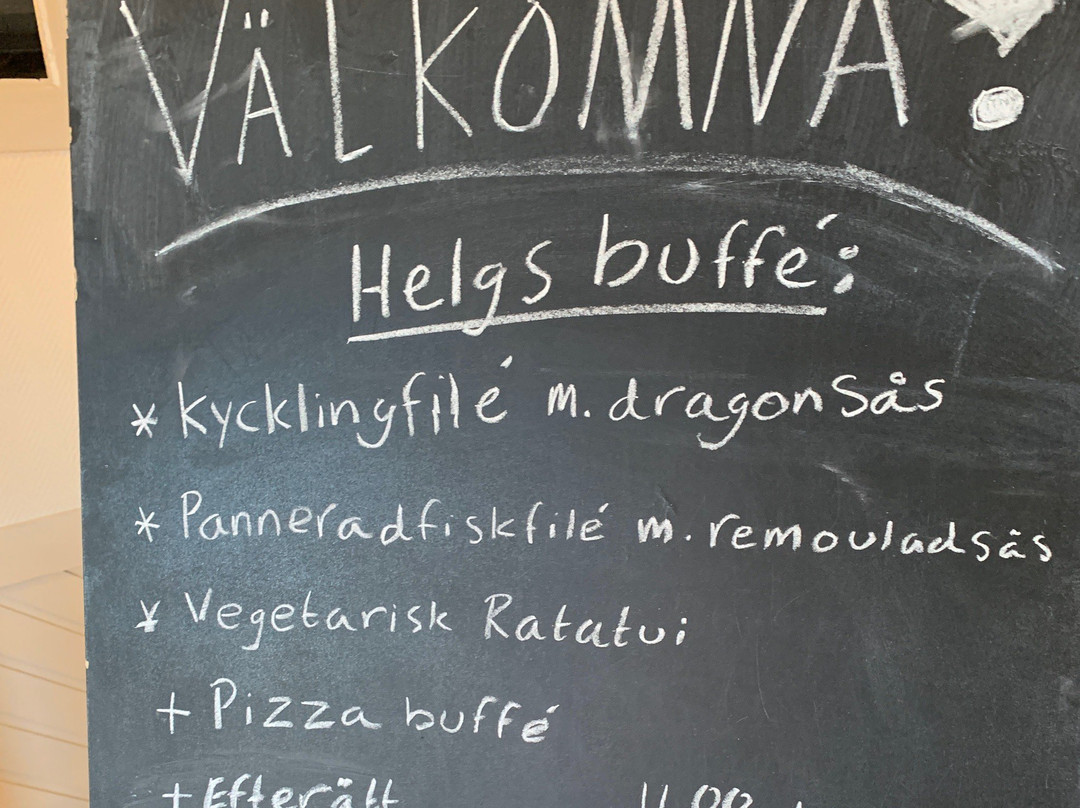 VÄLKOMNA!
Helgs buffé:
* Kycklingfilé m. dragonsås
* Panneradfiskfilé m. remouladsås
* Vegetarisk Ratatui
+ Pizza buffé
+ Efterätt 11.00